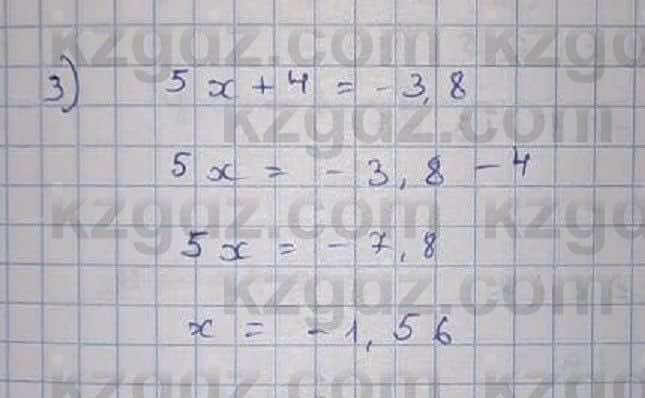 kzgdz.com kzgdz
3) 5x + 4 = -3,8
kzgdz.com
5x = -3,8 - 4
kzgdz.com kzgdz
5x = -7,8
kzgdz.com
x = -1,56
kzgdz.com kzgdz